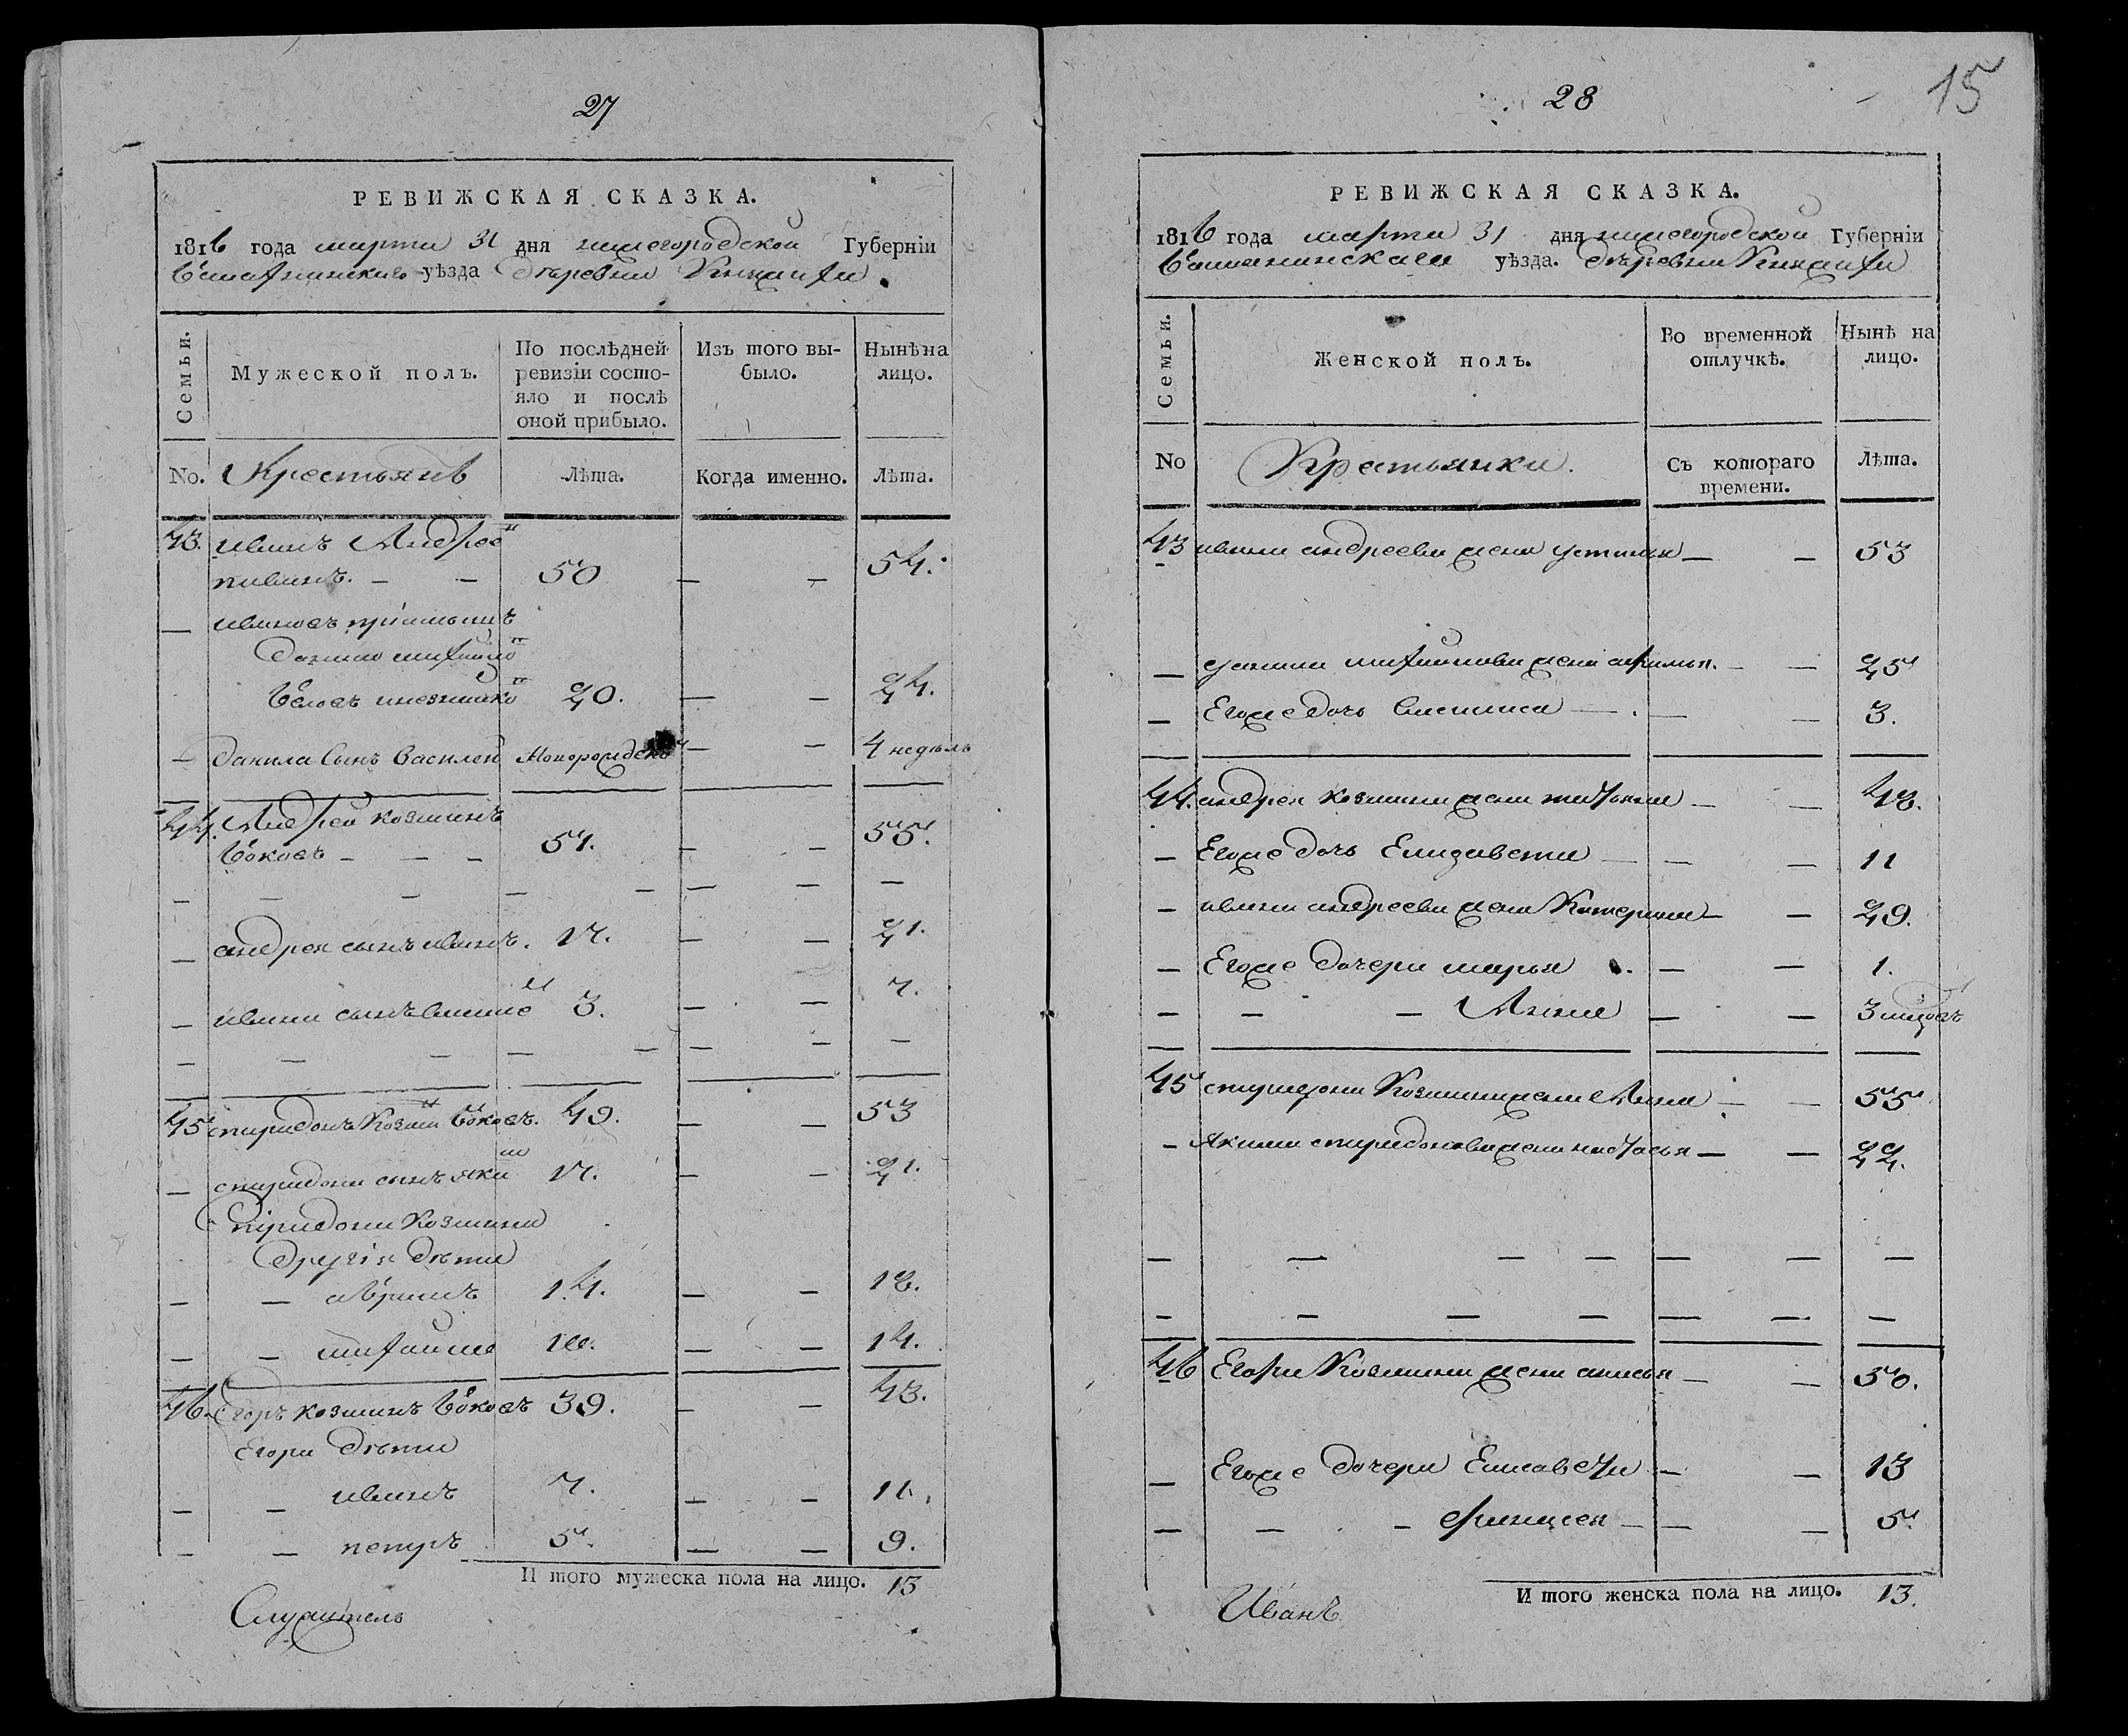 27
РЕВИЖСКАЯ СКАЗКА.
1816 года марта 31 дня нижегородской Губерніи
уѣзда Деревни
Семьи.
Мужеской полъ.
По послѣдней ревизіи состояло и послѣ оной прибыло.
Изъ того выбыло.
Нынѣ на лицо.
No. Крестьянѣ Лѣта. Когда именно. Лѣта.
43. иванъ Андрее
50 — — 54.
—
данило михаило
20. — — 24.
— данила Сынъ Василей Новорожденъ — — 4 недель
44. Андрей козминъ
Боковъ — — — 51. — — 55.
— — — — — — — —
— андрея сынъ иванъ. 17. — — 21.
— ивана сынъ василе й 3. — — 7.
— — — — — — — —
45 спиридонъ Козми н Боковъ. 49. — — 53
— спиридона сынъ яки м 17. — — 21.
Спиридона Козмина
другія дѣти
— — абрамъ 14. — — 18.
— — михаило 10. — — 14.
46. Егоръ козминъ Боковъ 39. — — 43.
Егора дѣти
— — иванъ 7. — — 11.
— — петръ 5. — — 9.
И того мужеска пола на лицо. 13
Служитель
28
15
РЕВИЖСКАЯ СКАЗКА.
1816 года марта 31 дня нижегородской Губерніи
уѣзда. деревни
Семьи.
Женской полъ.
Во временной отлучкѣ.
Нынѣ на лицо.
No Крестьянки. Съ котораго времени. Лѣта.
43 ивана андреева жена устинья — — 53
— данила михайлова жена — — 25
— Егоже дочь Василиса — — 3.
44. андрея козмина жена татьяна — — 48.
— Егоже дочь Елизавета — — 11
— ивана андреева жена Катерина — — 29.
— Егоже дочери марья — — 1.
— — — Анна — — 3
45 спиридона Козмина жена Анна — — 55
— Якима спиридонова жена настасья — — 22.
— — — — — — —
— — — — — — —
46 Егора Козмина жена анисья — — 50.
— Егоже дочери Елисавета — — 13
— — — — — 5.
И того женска пола на лицо. 13.
Иванъ